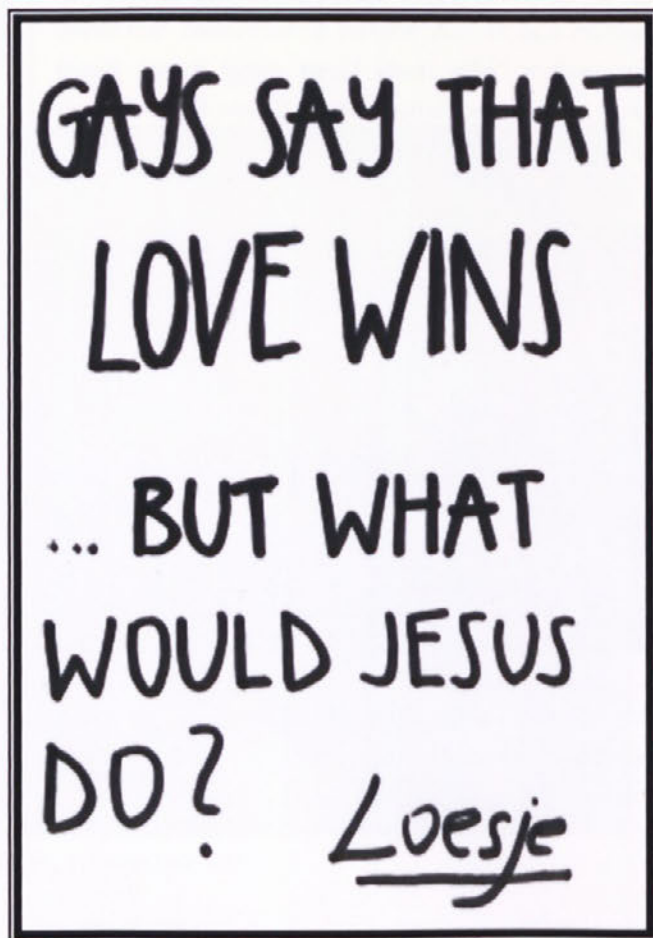 GAYS SAY THAT
LOVE WINS
... BUT WHAT
WOULD JESUS
DO?
Loesje